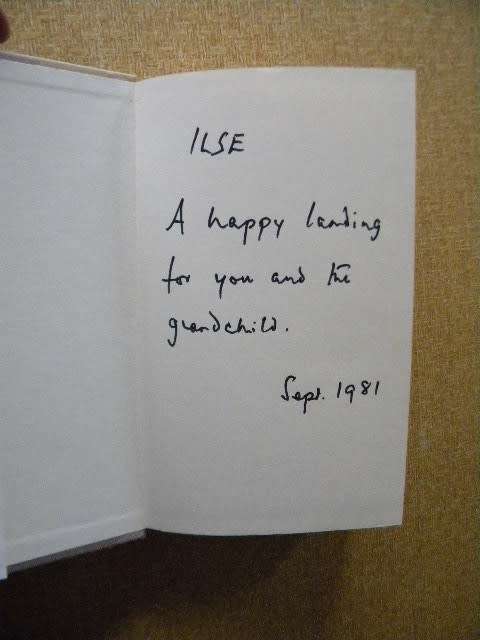 ILSE
A happy landing
for you and the
grandchild.
Sept. 1981